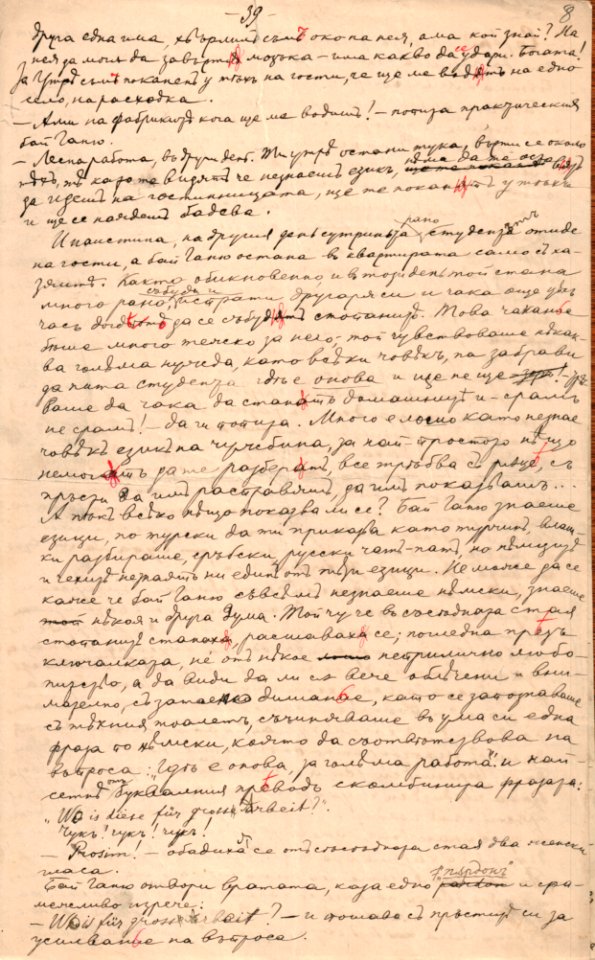 -39-
8
друга една има, хвърлилъ съмъ око на нея, ама кой знай? На
нея да можа да завъртѫ мозъка – има какво да се удари. Богата!
За утрѣ съмъ поканенъ у тѣхъ на гости, че ще ме водѭтъ на едно
село, на расходка.
– Ами на фабрикитѣ кога ще ме водишъ! – попита практическия
бай Ганю.
– Лесна работа, въ други денъ. Ти утрѣ остани тука, върти се около
тѣхъ, тѣ като те видятъ че незнаешъ езикъ, нѣма да те оставѭтъ
да идешъ на гостинницата, ще те поканѭтъ у тѣхъ
и ще се наядешъ бадева.
И наистина, на другия день сутриньта рано студентътъ отиде
на гости, а бай Ганю остана въ квартирата само съ ха-
зяитѣ. Както обикновенно, и въ този день той стана
много рано, събуди и истрати другаря си и чака още два
часа додѣто да се събудѭтъ стопанитѣ. Това чаканье
бѣше много тежско за него; той чувствоваше нѣкак-
ва голѣма нужда, като всѣки човѣкъ, па забрави
да пита студента гдѣ е онова и ще не ще трѣб-
ваше да чака да станѫтъ домашнитѣ и – срамъ
не срамъ! – да ги попита. Много е лошо като незнае
човѣкъ езикъ на чужбина, за най-простото нѣщо
немогѫтъ да те разберѫтъ, все трѣбва съ рѫцѣ, съ
пръсти да имъ расправяшъ, да имъ показвашъ...
А пъкъ всѣко нѣщо показва ли се? Бай Ганю знаеше
езици, по турски да ти приказва като турчинъ, влаш-
ки разбираше, сръбски, русски чатъ-патъ, но нѣмцитѣ
и чехитѣ незнаятъ ни единъ отъ тѣзи езици. Не може да се
каже че бай Ганю съвсѣмъ незнаеше нѣмски, знаеше
нѣкоя и друга дума. Той чу че въ съсѣдната стая
стопанитѣ станаха, расшаваха се; погледна прѣзъ
ключалката, не отъ нѣкое неприлично любо-
питство, а да види да ли сѫ вече облѣчени и вни-
мателно, съ запаено диханье, като се запознаваше
съ тѣхния тоалетъ, съчиняваше въ ума си една
фраза по нѣмски, която да съответствова на
въпроса: „Гдѣ е онова, за голѣма работа“ и най-
сетнѣ отъ буквалния прѣводъ скомбинира фразата:
„Wo is diese für grosse Arbeit?“.
Чукъ! чукъ! чукъ!
– Prosim! – обадиха се отъ съсѣдната стая два женски
гласа.
Бай Ганю отвори вратата, каза едно „пардонъ“ и сра-
межливо изрече:
– Wo is für grosse Arbeit? – и помаха съ пръститѣ си за
усилванье на въпроса.